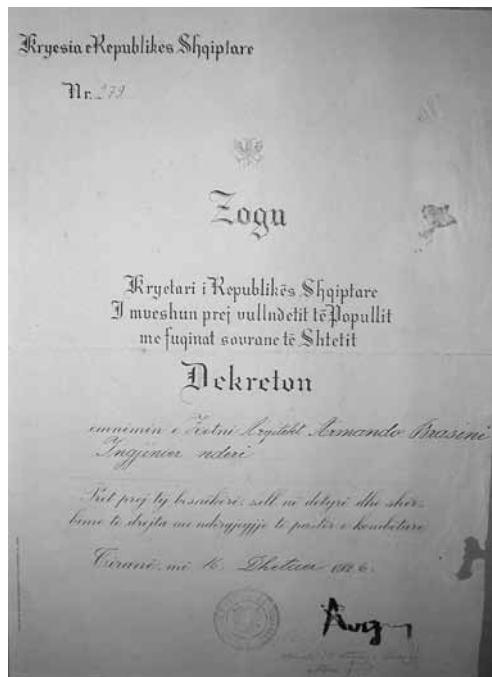 Kryesia e Republikës Shqiptare
Nr. 279
Zogu
Kryetari i Republikës Shqiptare
I mveshun prej vullndetit të Popullit
me fuqinat sovrane të Shtetit
Dekreton
emnimin e Zotni Arqitekt Armando Brasini
Ingjinier nderi
Pret prej tij besnikëri, zell në detyrë dhe shër-
bime të drejta me ndërgjegjje të pastër e kombëtare
Tiranë, më 16. Dhetuer 1926.